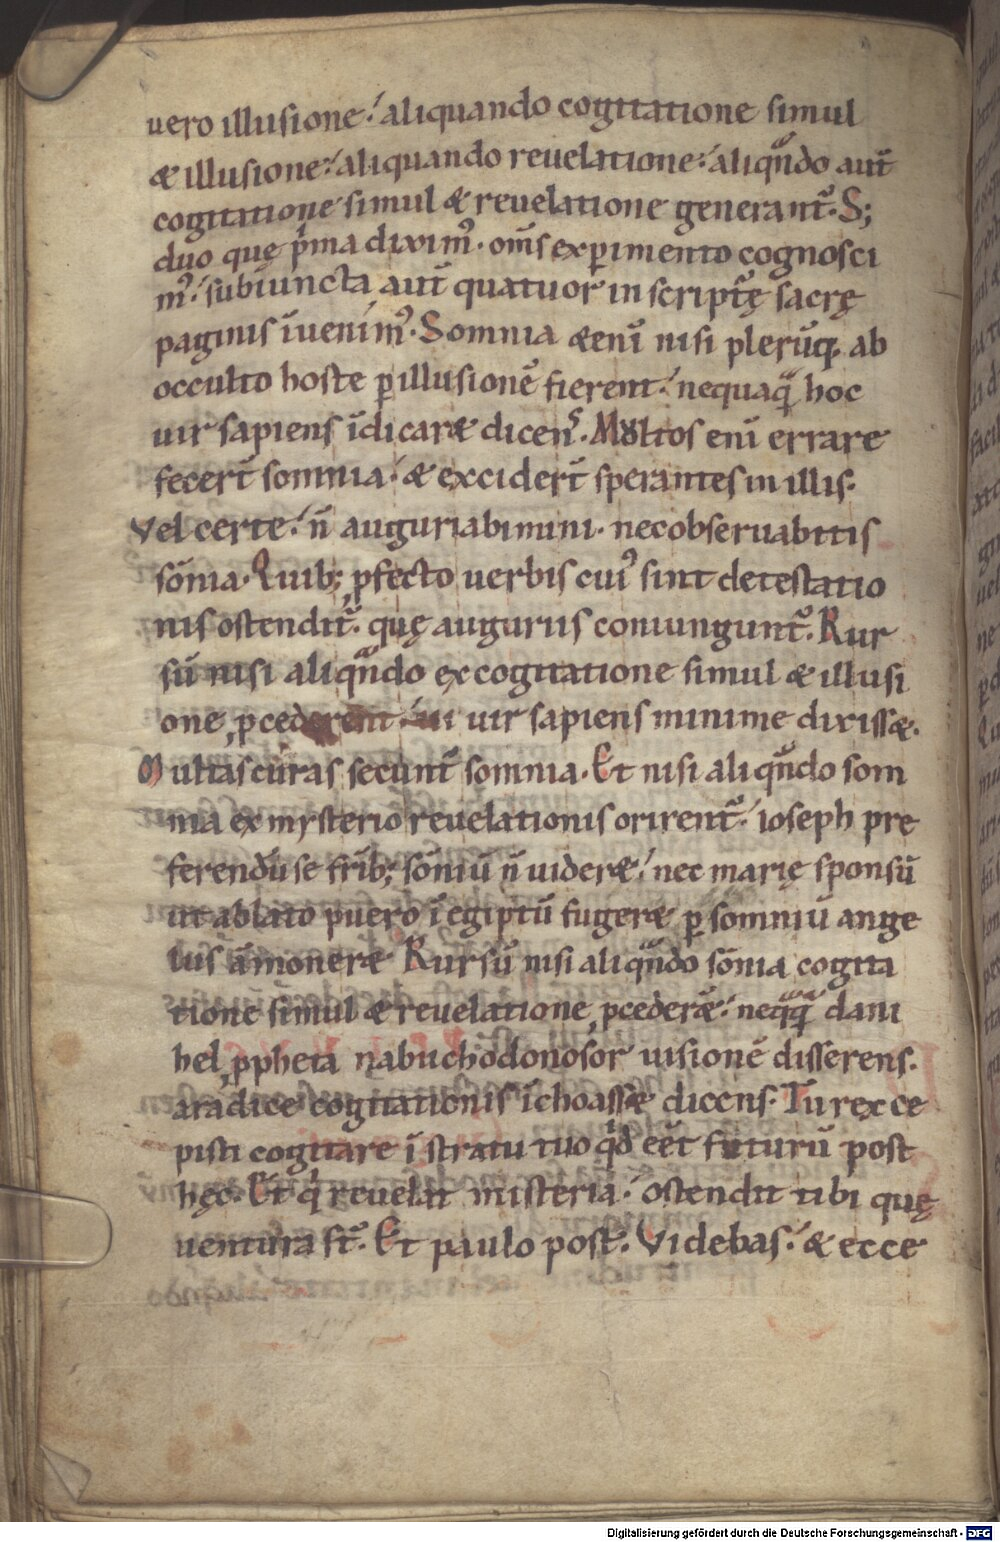 uero illusione. aliquando cogitatione simul
& illusione. aliquando reuelatione. aliqͣndo aut̄
cogitatione simul & reuelatione generant᷑. S;
duo quę p̍ma diximꝰ. om̄s experimento cognosci
mꝰ. subiuncta aut̄ quatuor in scripturę sacrę
paginis īuenimꝰ. Somnia &eni nisi plerūq. ab
occulto hoste ꝑ illusionē fierent. nequaqͣ hoc
uir sapiens īdicar& dicenˢ. Multos eni errare
fecert̄ somnia. & excidert̄ sperantes in illis.
Vel certe. n̄ auguriabimini. nec obseruabitis
sōnia. Quib; ꝓfecto uerbis cuiꝰ sint detestatio
nis ostendit᷑. quę auguriis coniungunt᷑. Rur
sū nisi aliqͣndo ex cogitatione simul & illusi
one ꝓcederent uir sapiens minime dixiss&.
Multas curas secunt᷑ somnia. Et nisi aliqͣndo som
nia ex mysterio reuelationis orirent᷑. ioseph pre
ferendū se frīb; sōniū n̄ uider&. nec marię sponsū
ut ablato puero ī egiptū fuger& ꝑ somniū ange
lus āmoner& Rursū nisi aliqͣndo sōnia cogita
tione simul & reuelatione ꝓceder&̄. neqͣqͣ dani
hel ꝓpheta nabuchodonosor uisionē disserens.
a radice cogitationis īchoass& dicens. Tu rex ce
pisti cogitare ī stratu tuo qͥd eēt futurū post
hęc. Et qͥ reuelat misteria. ostendit tibi quę
uentura st̄. Et paulo post. Videbas. & ecce
Digitalisierung gefördert durch die Deutsche Forschungsgemeinschaft - DFG